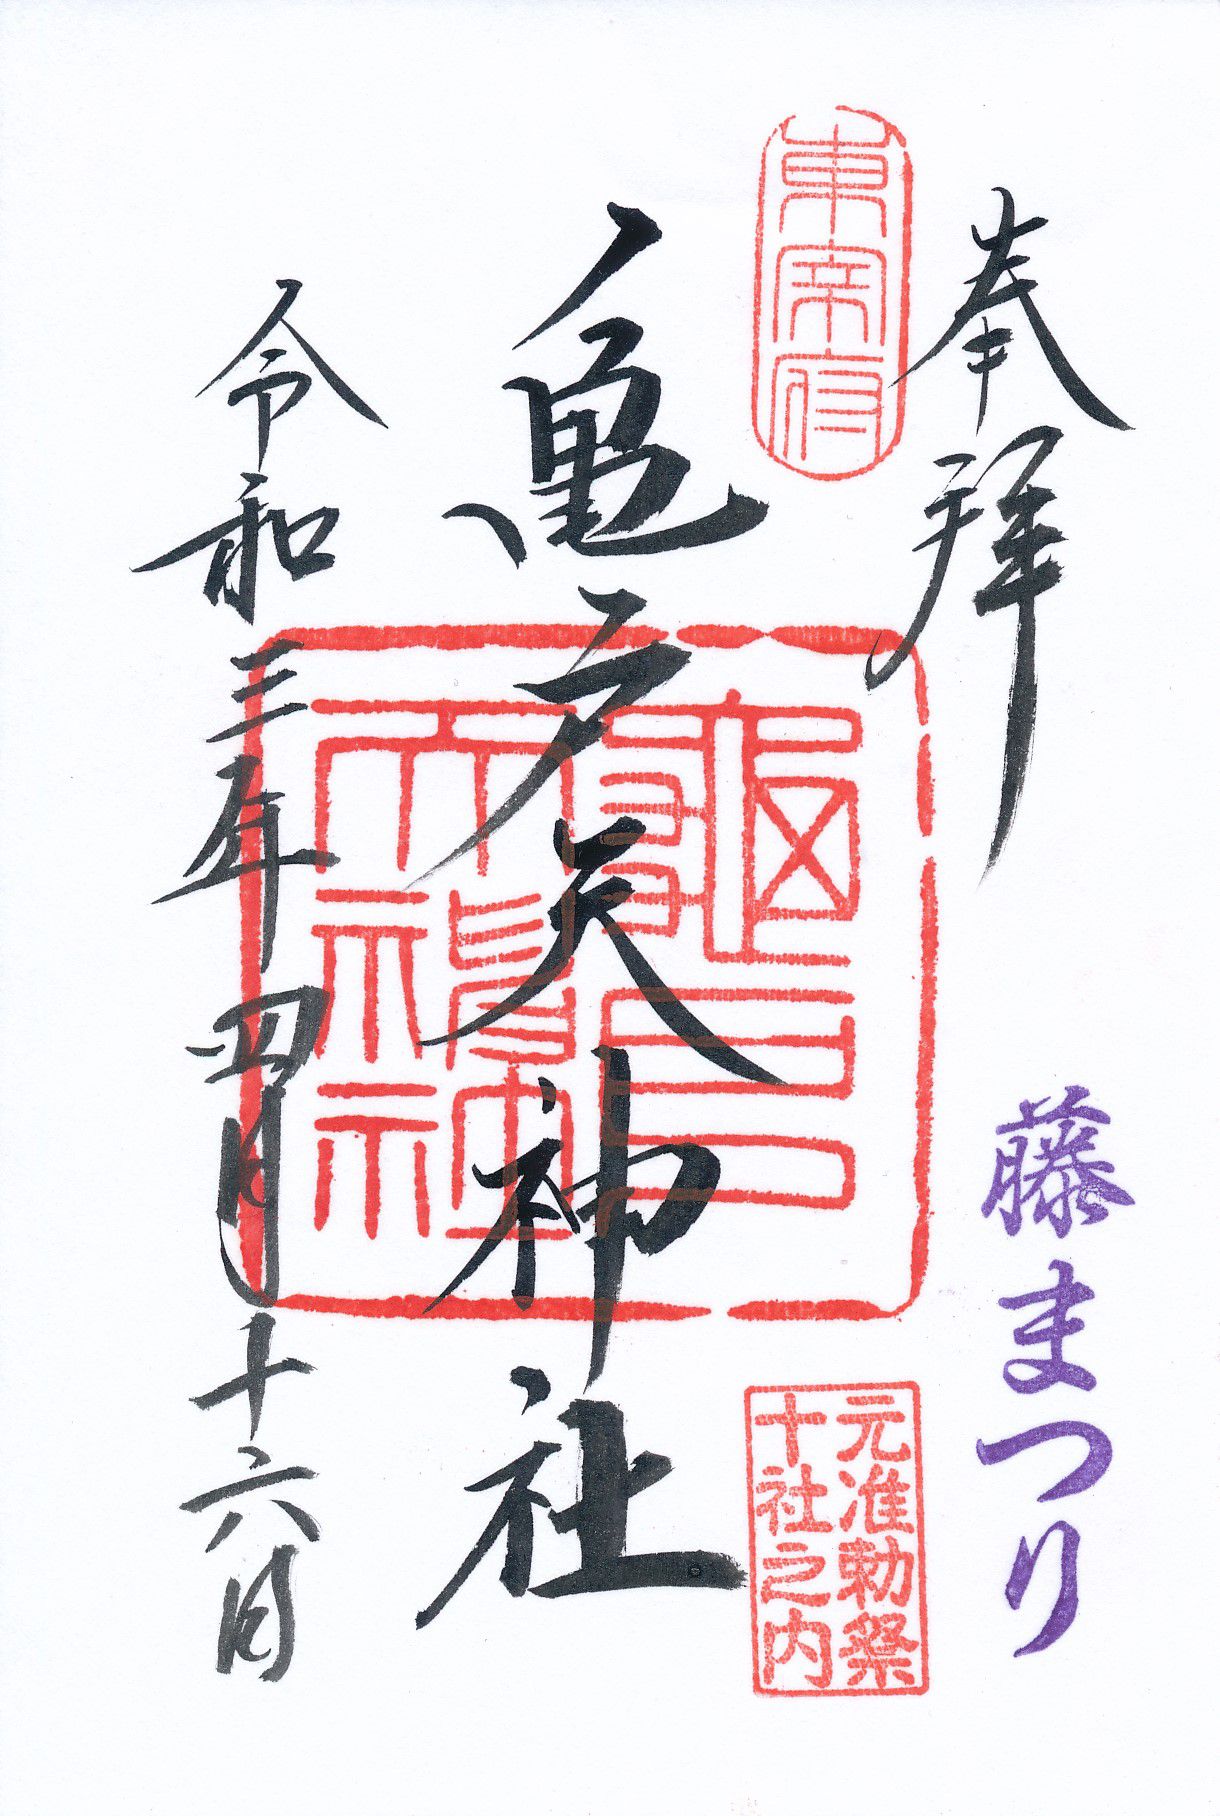 奉拝
藤まつり
東宰府
元准勅祭
十社之内
亀戸天神社
亀戸
天神社
令和三年四月十六日